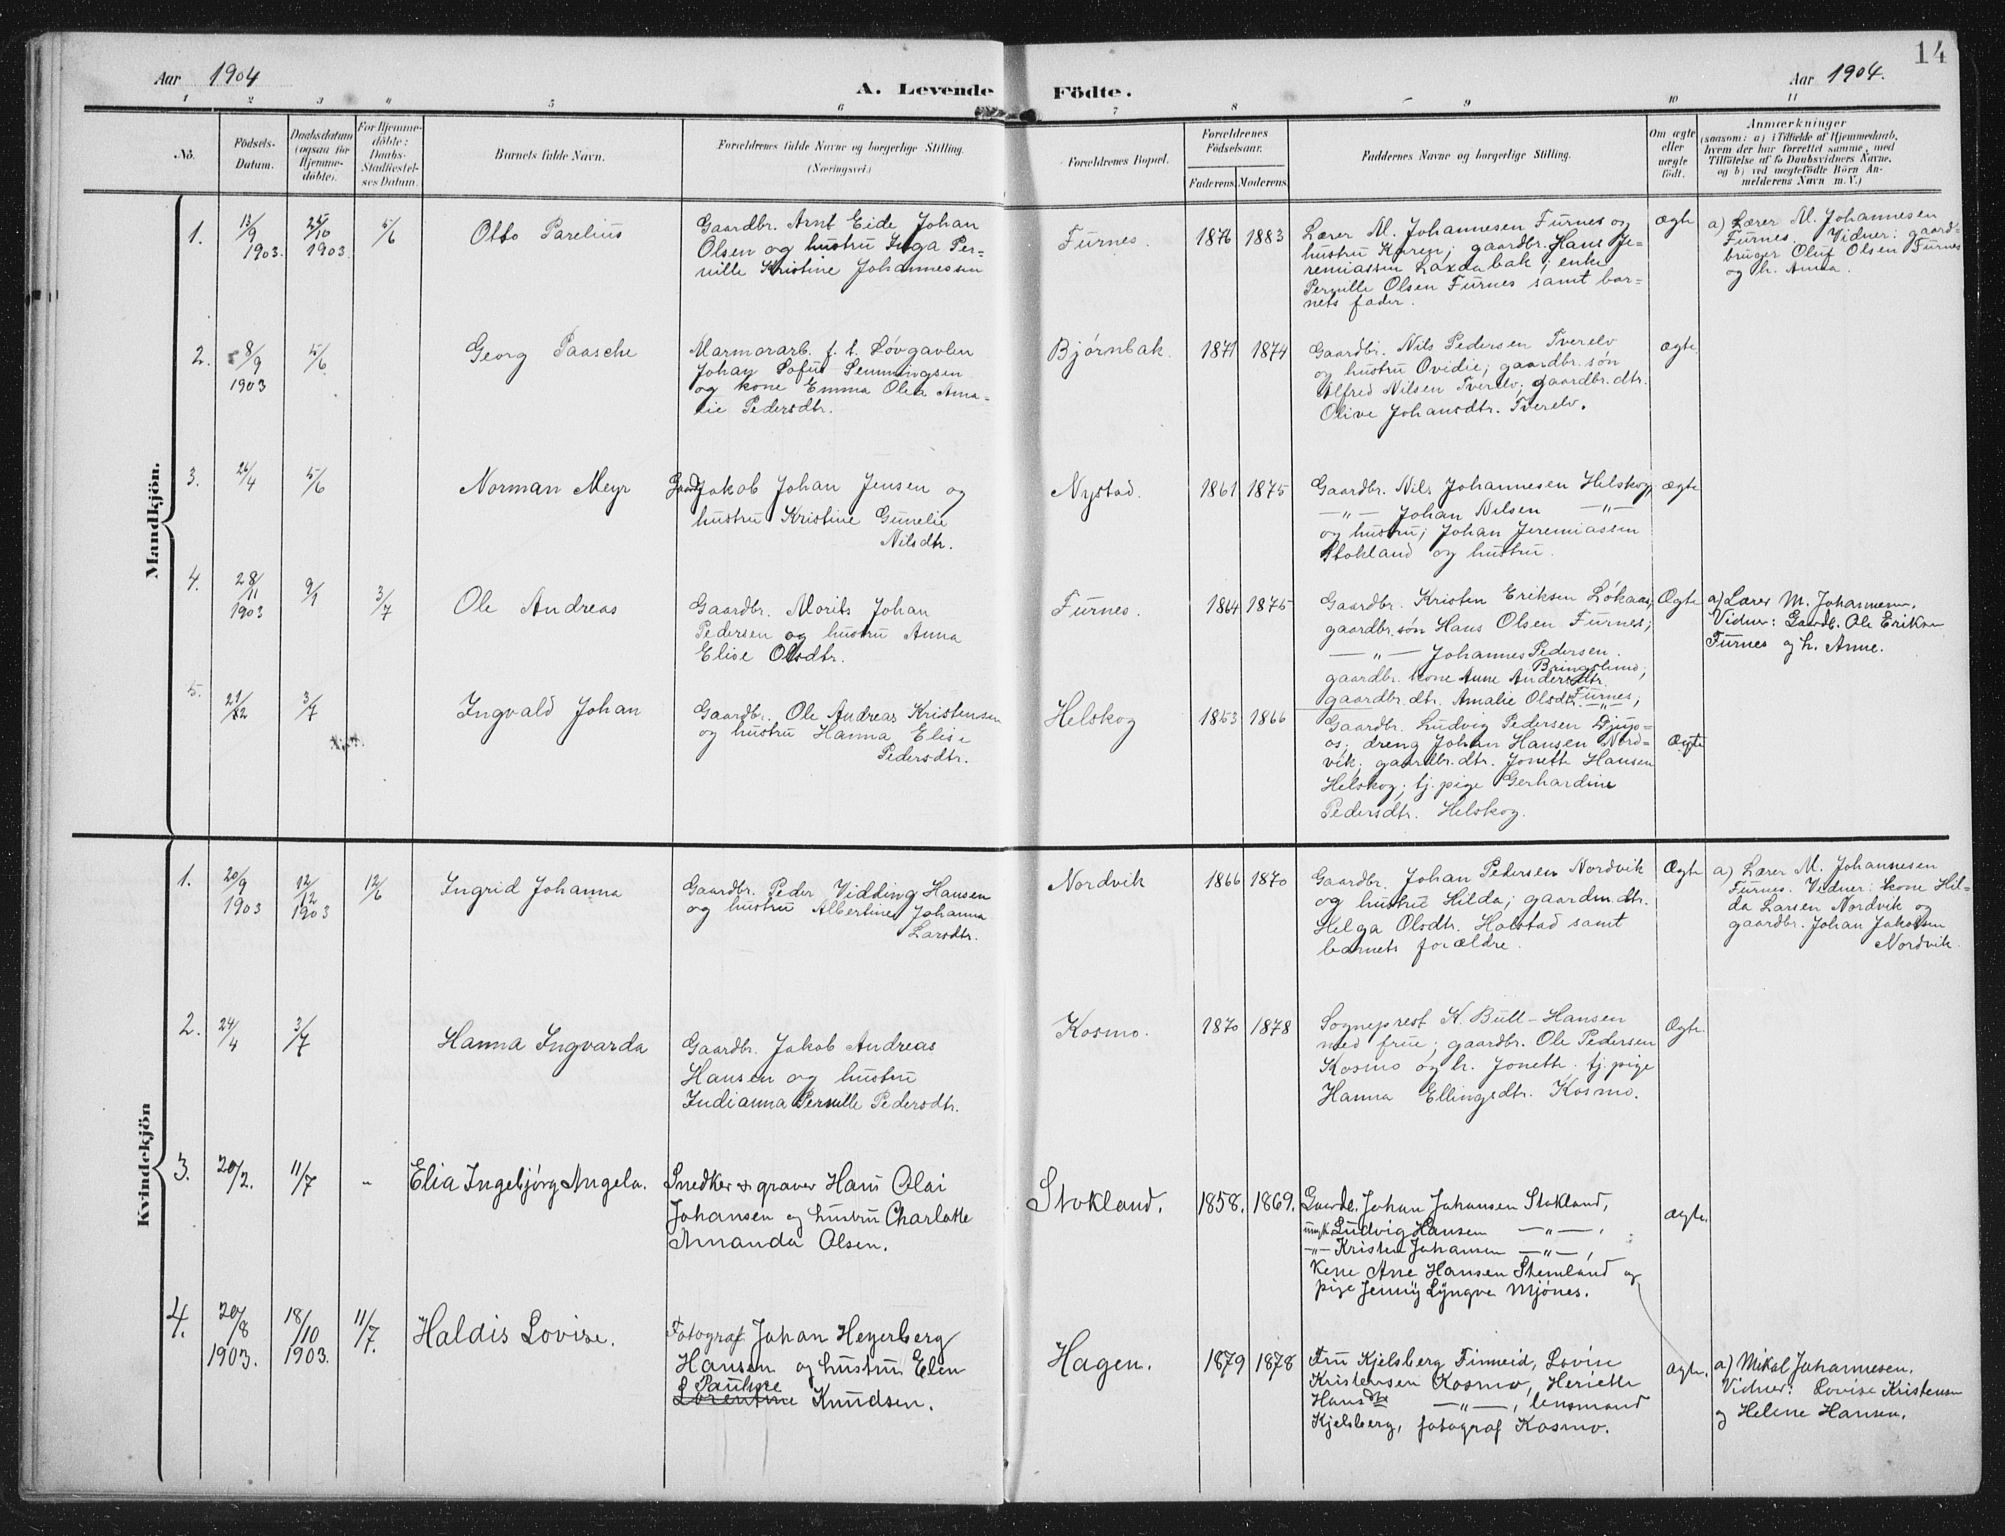 14
Aar 1904
A. Levende Födte.
Aar 1904.
1 2 3 4 5 6 7 8 9 10 11
No.
Födsels-
Datum.
Daabsdatum
(ogsaa for
Hjemme-
döbte).
For Hjemme-
döbte:
Daabs-
Stadfæstel-
ses Datum.
Barnets fulde Navn.
Forældrenes fulde Navne og borgerlige Stilling.
(Næringsvei.)
Forældrenes Bopæl.
Forældrenes
Födselsaar.
Faderens. Moderens.
Faddernes Navne og borgerlige Stilling.
Om ægte
eller
uægte
födt.
Anmærkninger
(saasom: a) i Tilfælde af Hjemmedaab,
hvem der har forrettet samme, med
Tilföielse af to Daabsvidners Navne,
og b) ved uægtefödte Börn An-
melderens Navn m. V.)
Mandkjön.
1.
13/9
1903.
25/10
1903.
5/6
Otto Parelius
Gaardbr. Arnt Eide Johan
Olsen og hustru Inga Per-
nille Kristine Johannessen
Furnes.
1876 1883
Lærer M. Johannesen Furnes og
hustru Karen; gaardbr. Hans Je-
remiassen Laxdabak; enke
Pernille Olsen Furnes samt bar-
nets fader.
ægte
a) Lærer M. Johannesen
Furnes. Vidner: gaard-
bruger Oluf Olsen Furnes
og h. Anna.
2.
8/9
1903
5/6
Georg Paasche
Marmorarb. f. t. Løvgavlen
Johan Sofus Pemmingsen
og kone Emma Olea Ama-
lie Pedersdtr.
Bjørnbak.
1871 1874
Gaardbr. Nils Pedersen Tverelv
og hustru Ovidie; gaardbr. søn
Alfred Nilsen Tverelv; gaardbr. dtr.
Olive Johansdtr. Tverelv.
ægte
3.
26/4
5/6
Norman Meyr
Gaardb. Jakob Johan Jensen og
hustru Kristine Gunelie
Nilsdtr.
Nystad.
1861 1875
Gaardbr. Nils Johannesen Helskog,
—„— Johan Nilsen —„—
og hustru; Johan Jeremiassen
Stokland og hustru.
ægte
4.
28/11
1903
9/1
3/7
Ole Andreas
Gaardbr. Morits Johan
Pedersen og hustru Anna
Elise Olsdtr.
Furnes.
1864 1875
Gaardbr. Kristen Eriksen Løkaas,
gaardbr. søn Hans Olsen Furnes;
—„— Johannes Pedersen
Bringslimo;
gaardbr. kone Anne Andersdtr.
Furnes;
gaardbr. dtr. Amalie Olsdtr. —„—
Ægte
a) Lærer M. Johannesen.
Vidner: Gaardb. Ole Eriksen
Furnes og h. Anne.
5.
29/12
3/7
Ingvald Johan
Gaardbr. Ole Andreas Kristensen
og hustru Hanna Elise
Pedersdtr.
Helskog
1853 1866
Gaardbr. Ludvig Pedersen Djups-
os; dreng Johan Hansen Nord-
vik; gaardbr. dtr. Jonette Hansen
Helskog; tj. pige Gerhardine
Pedersdtr. Helskog.
Ægte
Kvindekjön
1.
20/9
1903
12/12
1903
12/6
Ingrid Johanna
Gaardbr. Peder Vidding Hansen
og hustru Albertine Johanna
Larsdtr.
Nordvik
1866 1870
Gaardbr. Johan Pedersen Nordvik
og hustru Hilda; gaardm. dtr.
Helga Olsdtr. Holstad samt
barnets forældre.
Ægte
a) Lærer M. Johannesen
Furnes. Vidner: kone Hil-
da Larsen Nordvik og
gaardbr. Johan Jakobsen
Nordvik.
2.
24/4
3/7
Hanna Ingvarda
Gaardbr. Jakob Andreas
Hansen og hustru
Indianna Pernille Pedersdtr.
Kosmo.
1870 1878
Sogneprest K. Bull-Hansen
med frue; gaardbr. Ole Pedersen
Kosmo og h. Jonette. tj. pige
Hanna Ellingsdtr. Kosmo.
Ægte
3.
20/2.
11/7
„
Elia Ingebjörg Angela.
Snedker & graver Hans Olai
Johansen og hustru Charlotte
Amanda Olsen.
Stokland.
1858. 1869.
Gaardb. Johan Johansen Stokland,
ungk. Ludvig Hansen —„—,
—„— Kristen Johansen —„—,
Kone Ane Hansen Stemland og
pige Jenny Lyngve Mjönes.
ægte.
4.
20/8
1903.
18/10
1903.
11/7.
Haldis Lovise.
Fotograf Johan Heyerberg
Hansen og hustru Elen
Pauline
Lorentine Knudsen.
Hagen.
1879 1878
Fru Kjelsberg Finneid, Lovise
Kristensen Kosmo, Heriette
Hansdtr —„—, lensmand
Kjelsberg, fotograf Kosmo.
ægte.
a) Mikal Johannesen.
Vidner: Lovise Kristensen
og Helene Hansen.